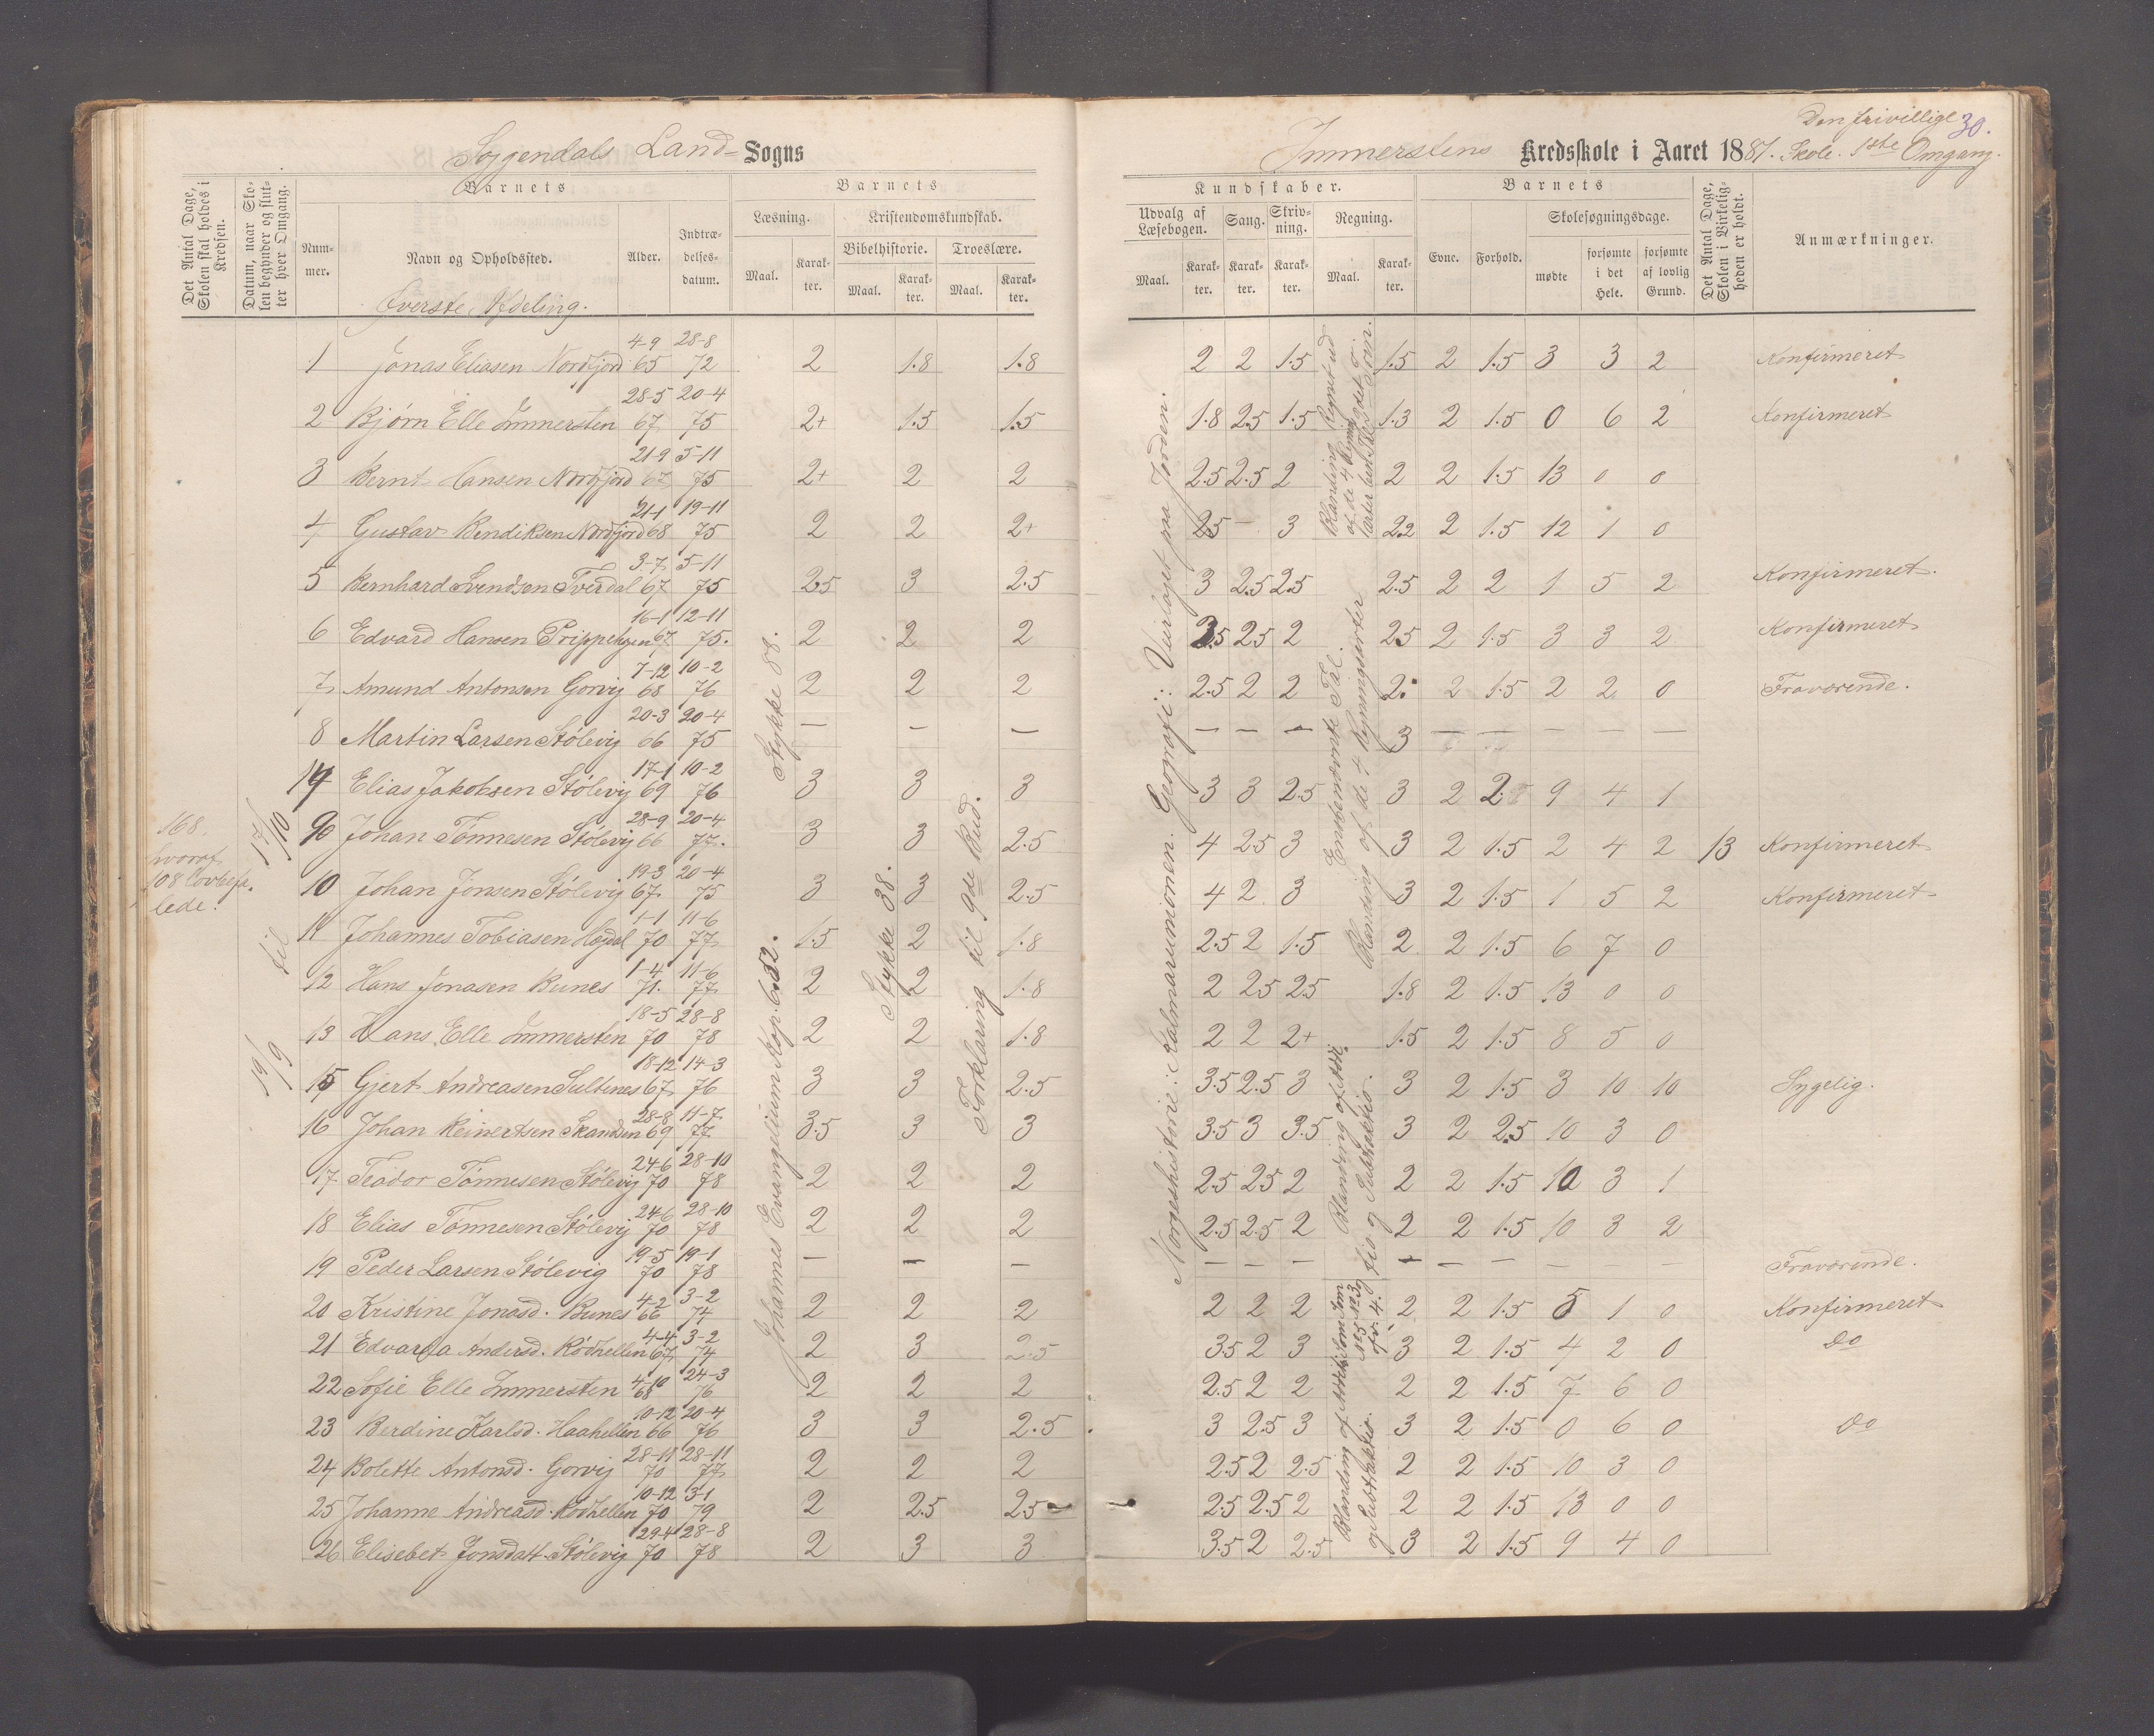 Sogendals Land- Sogns
Immerstens Kredsskole i Aaret 1881. Skole. 1ste Omgang.
Den frivillige 30.
Det Antal Dage, Skolen skal holdes i Kredsen.
Datum, naar Skolen begynder og slutter hver Omgang.
Barnets
Nummer.
Navn og Opholdssted.
Alder.
Indtrædelsesdatum.
Barnets
Læsning.
Maal.
Karakter.
Kristendomskundskab.
Bibelhistorie.
Maal.
Karakter.
Troeslære.
Maal.
Karakter.
Kundskaber.
Udvalg af Læsebogen.
Maal.
Karakter.
Sang.
Karakter.
Skrivning.
Karakter.
Regning.
Maal.
Karakter.
Barnets
Evne.
Forhold.
Skolesøgningsdage.
mødte
forsømte i det Hele.
forsømte af lovlig Grund.
Det Antal Dage, Skolen i Virkeligheden er holdt.
Anmærkninger.
Øverste Afdeling.
1 Jonas Eliasen Nordfjord 4-9 65 28-8 72 2 1.8 1.8 2 2 1.5 1.5 2 1.5 3 3 2 Konfirmeret
2 Bjørn Elle Immersten 28-5 67 20-4 75 2+ 1.5 1.5 1.8 2.5 1.5 1.3 2 1.5 0 6 2 Konfirmeret
3 Bernt Hansen Nordfjord 21-9 67 5-11 75 2+ 2 2 2.5 2.5 2 2 2 1.5 13 0 0
4 Gustav Bendiksen Nordfjord 21-1 68 19-11 75 2 2 2+ 2.5 — 3 2.2 2 1.5 12 1 0
5 Bernhard Svendsen Tverdal 3-7 67 5-11 75 2.5 3 2.5 3 2.5 2.5 2.5 2 2 1 5 2 Konfirmeret.
6 Edvard Hansen Prippehgen 16-1 67 12-11 75. 2 2 2 2.5 2.5 2 2.5 2 1.5 3 3 2 Konfirmeret
7 Amund Antonsen Gorvig 7-12 68 10-2 76 2 2 2 2.5 2 2 2. 2 1.5 2 2 0 Fraværende.
8 Martin Larsen Stölevig 20-3 66 20-4 75 — — — — — — 3 — — — — —
14 Elias Jakobsen Stölevig 17-1 69 10-2 76 3 3 3 3 3 2.5 3 2 2 9 4 1
9 Johan Tönnesen Stölevig 28-9 66 20-4 77. 3 3 2.5 4 2.5 3 3 2 1.5 2 4 2 13 Konfirmeret
10 Johan Jonsen Stölevig 19-3 67 20-4 75 3 3 2.5 4 2 3 3 2 1.5 1 5 2 Konfirmeret
11 Johannes Tobiasen Høgdal 1-1 70 11-6 77 1.5 2 1.8 2.5 2 1.5 2 2 1.5 6 7 0
12 Hans Jonasen Bunes 1-4 71. 11-6 77 2 2 1.8 2 2.5 2.5 1.8 2 1.5 13 0 0
13 Hans Elle Immersten 18-5 70 28-8 78 2 2 1.8 2 2 2+ 1.5 2 1.5 8 5 0
15 Gjert Andreasen Sultenes 18-12 67 14-3 76 3 3 2.5 3.5 2.5 3 3 2 1.5 3 10 10 Sygelig.
16 Johan Reinertsen Skandsen 28-8 69 11-7 77 3.5 3 3 3.5 3 3.5 3 2 2.5 10 3 0
17 Teodor Tönnesen Stölevig 24-6 70 28-10 78 2 2 2 2.5 2.5 2 2 2 1.5 10 3 1
18 Elias Tönnesen Stölevig 24-6 70 28-10 78 2 2 2 2.5 2.5 2 2 2 1.5 10 3 2
19 Peder Larsen Stölevig 19-5 70 19-1 78 — — — — — — — — — — — — Fraværende.
20 Kristine Jonasd. Bunes 4-2 66 3-2 74 2 2 2 2 2 2 2 2 1.5 5 1 0 Konfirmeret
21 Edvarda Andersd. Rödhellen 4-4 67 3-2 74 2 3 2.5 3.5 2 3 3 2 1.5 4 2 0 Do
22 Sofie Elle Immersten 4-10 68 24-3 76 2 2 2 2.5 2 2 2 2 1.5 7 6 0
23 Berdine Karlsd. Haahellen 10-12 66 20-4 76 3 3 2.5 3 2.5 3 3 2 1.5 0 6 0 Do
24 Bolette Antonsd. Gorvig 28-11 70 28-11 77 2 2 2 2.5 2 2.5 2 2 1.5 10 3 0
25 Johanne Andreasd. Rödhellen 10-12 70 3-1 79 2 2.5 2.5 2.5 2.5 2 2 2 1.5 13 0 0
26 Elisebet Jonsdatt. Stölevig 29-4 70 28-8 78 2 3 3 3.5 2 2.5 3 2 1.5 9 4 0
168. hvoraf 108 lovbefalede.
19/9 til 17/10
Johannes Evangelium Kap. 6. 52. Stykke 88.
Stykke 38.
Forklaring til 9de Bud.
Norgeshistorie: Kalmarunionen. Geografi: Veirlaget paa Jorden.
Blanding af de 4 Regningsarter
Enebenævnte Tal.
Blanding af Addition og Subtraktion.
Blanding af Addition og Subtraktion.